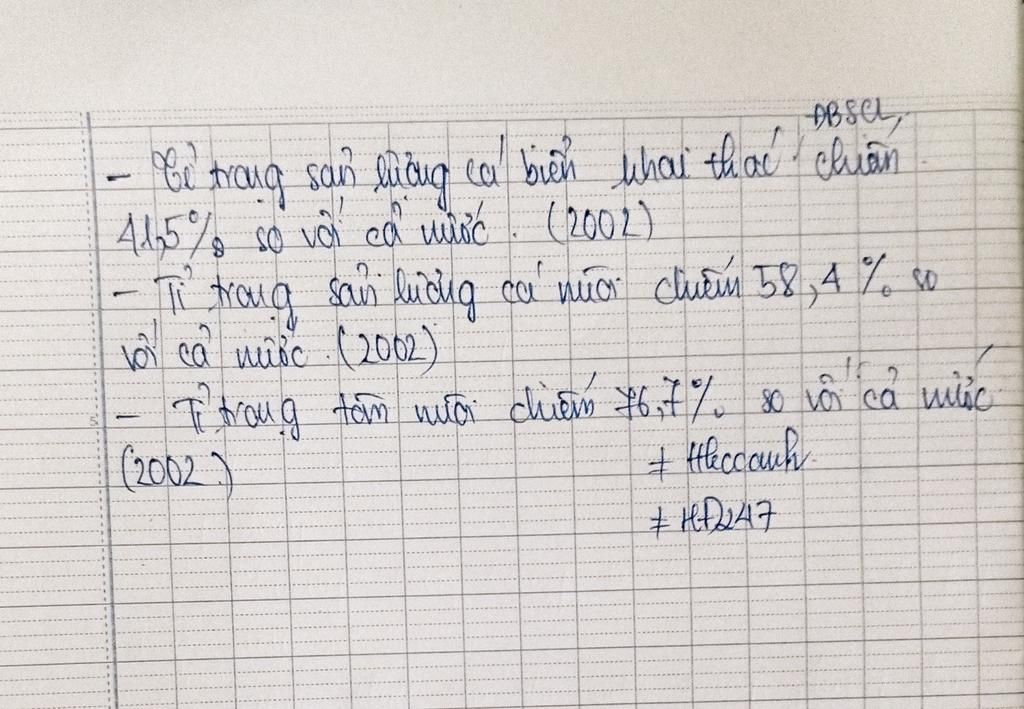 ĐBSCL
- Tỉ trọng sản lượng cá biển khai thác chiếm
41,5% so với cả nước. (2002)
- Tỉ trọng sản lượng cá nuôi chiếm 58,4% so
với cả nước. (2002)
- Tỉ trọng tôm nuôi chiếm 76,7% so với cả nước
(2002)